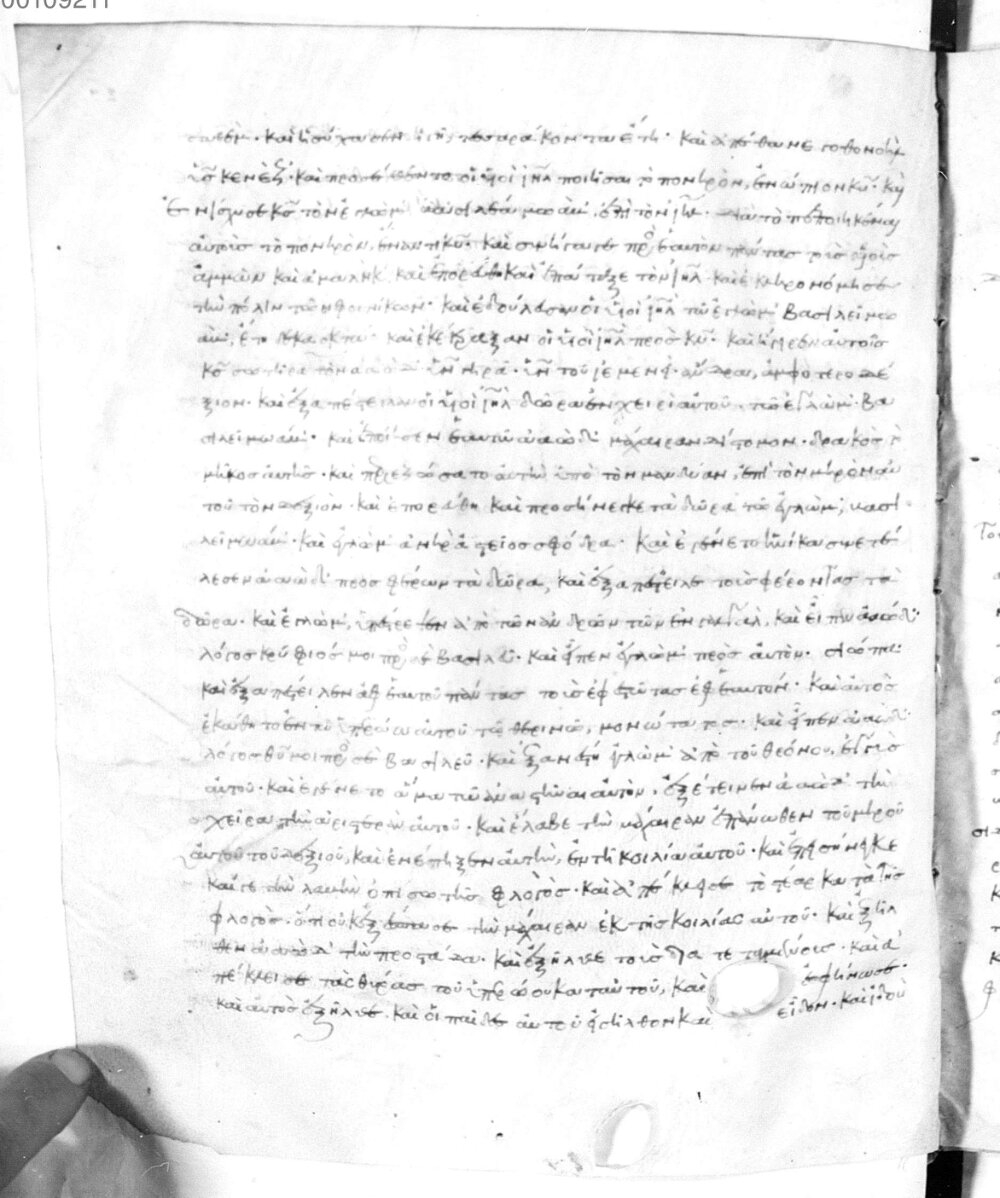 00109211
καὶ ἡσύχασεν ἡ γῆ τεσσαράκοντα ἔτη· καὶ ἀπέθανε γοθονιὴλ
ϊὸσ κενέζ· καὶ προσέθεντο οἱ ϋἱοὶ ιηλ ποιῆσαι τὸ πονηρὸν, ἐνώπιον κυ· καὶ
ἐνίσχυσε κσ τὸν ἐγλὼμ βασιλέα μωὰβ, ἐπὶ τὸν ιηλ· διὰ τὸ πεποιηκέναι
αὐτοὺσ τὸ πονηρὸν, ἔναντι κυ· καὶ συνήγαγε πρὸσ ἑαυτὸν πάντασ τοὺσ υἱοὺσ
ἀμμὼν καὶ ἀμαλὴκ· καὶ ἐπορεύθη καὶ ἐπάταξε τὸν ιηλ· καὶ ἐκληρονόμησε
τὴν πόλιν τῶν φοινίκων· καὶ ἐδούλευσαν οἱ υἱοὶ ιηλ τῶ ἐγλὼμ βασιλεῖ μω
ὰβ, ἔτη δέκα ὀκτώ· καὶ ἐκέκραξαν οἱ υἱοὶ ιηλ πρὸσ κν· καὶ ἤγειρεν αὐτοῖσ
κσ σωτῆρα τὸν ἀὼδ υἱὸν γηρὰ· υἱὸν τοῦ ἰεμενί· ἄνδρα, ἀμφοτεροδέ
ξιον· καὶ ἐξαπέστειλαν οἱ υἱοὶ ιηλ δῶρα ἐν χειρὶ αὐτοῦ, τῶ ἐγλὼμ βα
σιλεῖ μωάβ· καὶ ἐποίησεν ἑαυτῶ ἀὼδ μάχαιραν δίστομον· δρακὸσ τὸ
μῆκοσ αὐτῆσ· καὶ περιεζώσατο αὐτὴν ὑπὸ τὸν μανδύαν, ἐπὶ τὸν μηρὸν αὐ
τοῦ τὸν δεξιόν· καὶ ἐπορεύθη καὶ προσήνεγκε τὰ δῶρα τῶ ἐγλὼμ, βασι
λεῖ μωάβ· καὶ ἐγλὼμ ἀνὴρ ἀστεῖοσ σφόδρα· καὶ ἐγένετο ἡνίκα συνετέ
λεσεν ἀὼδ προσφέρων τὰ δῶρα, καὶ ἐξαπέστειλε τοὺσ φέροντασ τὰ
δῶρα· καὶ ἐγλὼμ, ὑπέστρεψεν ἀπὸ τῶν γλυπτῶν τῶν ἐν γαλγὰλ, καὶ εἶπεν ἀὼδ·
λόγοσ κρύφιόσ μοι πρὸσ σὲ βασιλεῦ· καὶ εἶπεν ἐγλὼμ πρὸσ αὐτόν· σιώπα·
καὶ ἐξαπέστειλεν ἀφ ἑαυτοῦ πάντασ τοὺσ ἐφεστῶτασ ἐφ ἑαυτόν· καὶ αὐτὸσ
ἐκάθητο ἐν τῶ ὑπερώω αὐτοῦ τῶ θερινῶ, μονώτατοσ· καὶ εἶπεν ἀὼδ
λόγοσ θυ μοι πρὸσ σὲ βασιλεῦ· καὶ ἐξανέστη ἐγλὼμ ἀπὸ τοῦ θρόνου, ἐγγὺσ
αὐτοῦ· καὶ ἐγένετο ἅμα τῶ ἀναστῆναι αὐτὸν, ἐξέτεινεν ἀὼδ τὴν
χεῖρα τὴν ἀριστερὰν αὐτοῦ· καὶ ἔλαβε τὴν μάχαιραν ἐπάνωθεν τοῦ μηροῦ
αὐτοῦ τοῦ δεξιοῦ, καὶ ἐνέπηξεν αὐτὴν, ἐν τῆ κοιλία αὐτοῦ· καὶ ἐπεισήνεγκε
καί γε τὴν λαβὴν ὀπίσω τῆσ φλογόσ· καὶ ἀπέκλεισε τὸ στέαρ κατὰ τῆσ
φλογόσ· ὅτι οὐκ ἐξέσπασε τὴν μάχαιραν ἐκ τῆσ κοιλίασ αὐτοῦ· καὶ ἐξῆλ
θεν ἀὼδ τὴν προστάδα· καὶ ἐξῆλθε τοὺσ διατεταγμένουσ· καὶ ἀ
πέκλεισε τὰσ θύρασ τοῦ ὑπερώου κατ αὐτοῦ, καὶ ἐσφήνωσε·
καὶ αὐτὸσ ἐξῆλθε· καὶ οἱ παῖδεσ αὐτοῦ εἰσῆλθον καὶ εἶδον· καὶ ἰδοὺ